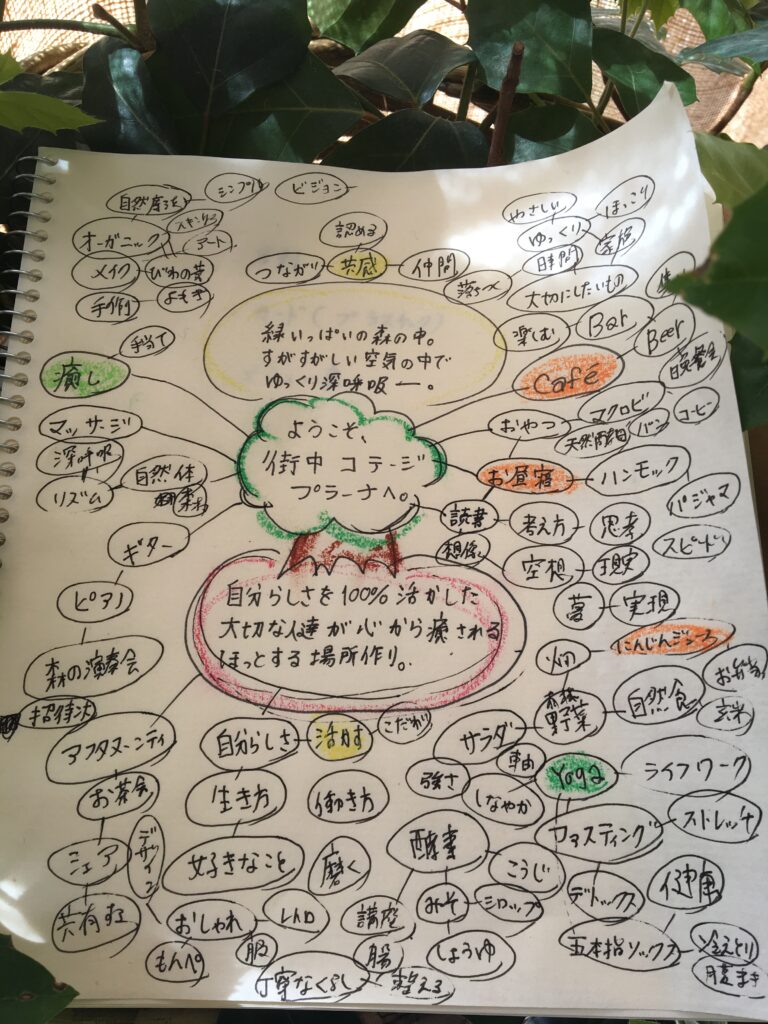 シンプル
ビジョン
オーガニック
アート
メイク
びわの葉
手作り
よもぎ
認める
つながり
共感
仲間
やさしい
ほっこり
ゆっくり
時間
家族
大切にしたいもの
楽しむ
Bar
Beer
緑いっぱいの森の中。
すがすがしい空気の中で
ゆっくり深呼吸ー。
手当て
癒し
Café
マッサージ
深呼吸
リズム
自然体
ようこそ、
街中コテージ
プラーナへ。
おやつ
マクロビ
パン
コーヒー
お昼寝
ハンモック
パジャマ
読書
考え方
思考
想像
空想
現実
夢
実現
ギター
ピアノ
森の演奏会
招待状
自分らしさを100%活かした
大切な人達が心から癒される
ほっとする場所作り。
にんじんジュース
お弁当
自然食
玄米
野菜
サラダ
アフタヌーンティ
お茶会
シェア
共有する
自分らしさ
活かす
こだわり
生き方
働き方
好きなこと
磨く
デザイン
おしゃれ
レトロ
もんペ
服
丁寧なくらし
強さ
しなやか
Yoga
ライフワーク
ファスティング
ストレッチ
酵素
こうじ
みそ
シロップ
講座
しょうゆ
腸
整える
デトックス
健康
五本指ソックス
冷えとり
腹まき